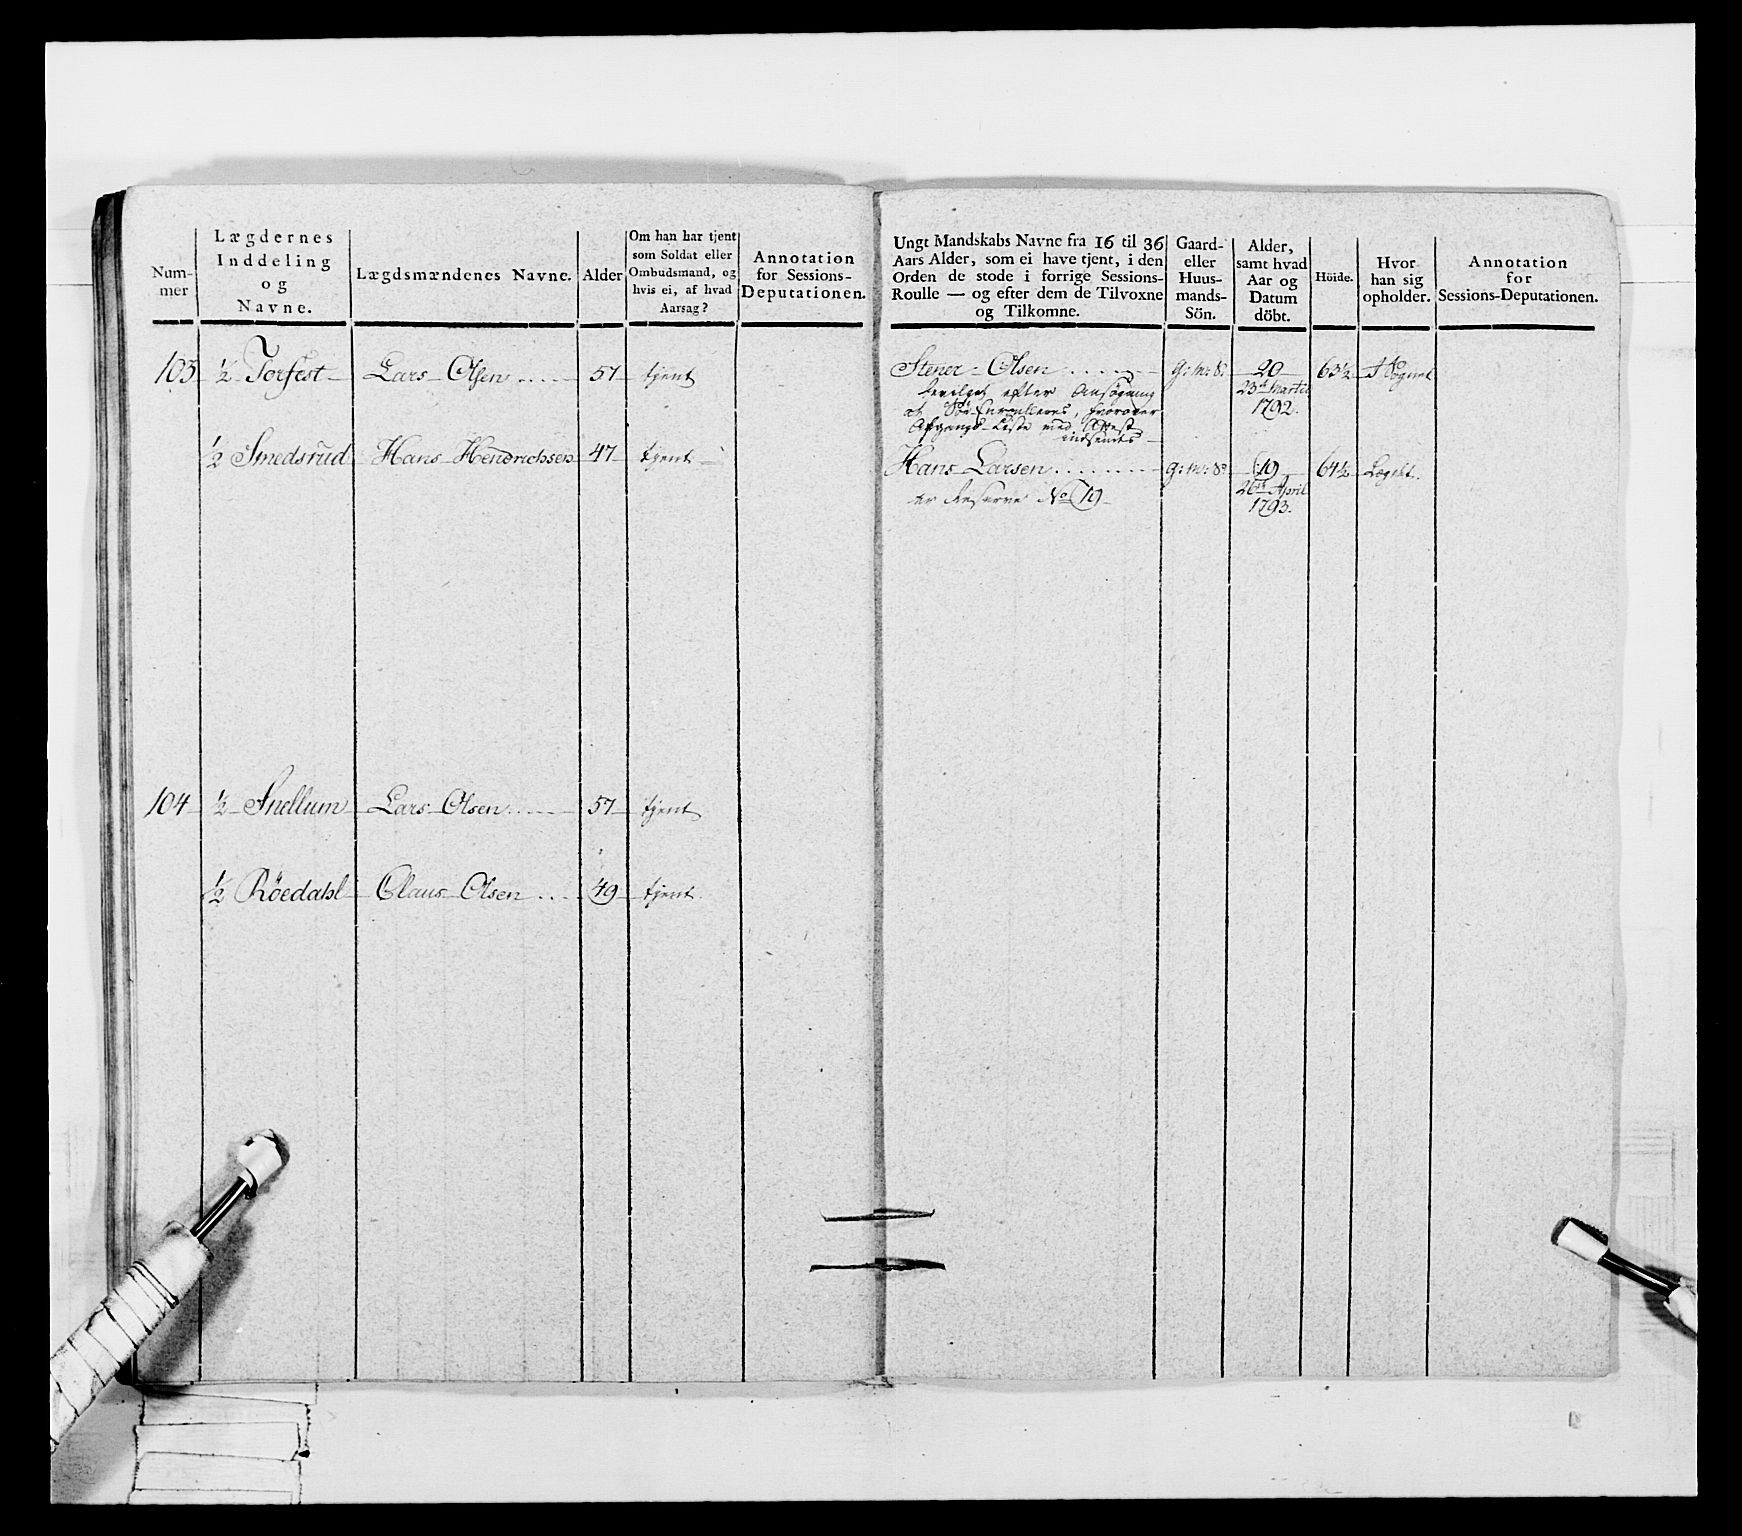 Num-
mer
Lægdernes
Inddeling
og
Navne.
Lægdsmændenes Navne.
Alder
Om han har tjent
som Soldat eller
Ombudsmand, og
hvis ei, af hvad
Aarsag?
Annotation
for Sessions-
Deputationen.
103 ½ Torfest Lars Olsen 57 tjent
½ Smedsrud Hans Hendrichsen 47 tjent
104 ½ Snellum Lars Olsen 57 tjent
½ Röedahl Claus Olsen 49 tjent
Ungt Mandskabs Navne fra 16 til 36
Aars Alder, som ei have tjent, i den
Orden de stode i forrige Sessions-
Roulle — og efter dem de Tilvoxne
og Tilkomne.
Gaard-
eller
Huus-
mands-
Sön.
Alder,
samt hvad
Aar og
Datum
döbt.
Höide.
Hvor
han sig
opholder.
Annotation
for
Sessions-Deputationen.
Stener Olsen G: m: S: 20 63½ Sognet
bevilget efter Ansøgning 23de Martii
at Søe-Enrulleres, hvorover 1792.
Afgangs-Liste med Attest
indsendes
Hans Larsen G: m: S: 19 64½ Lægdet.
er Reserve No 19 26de April
1793.